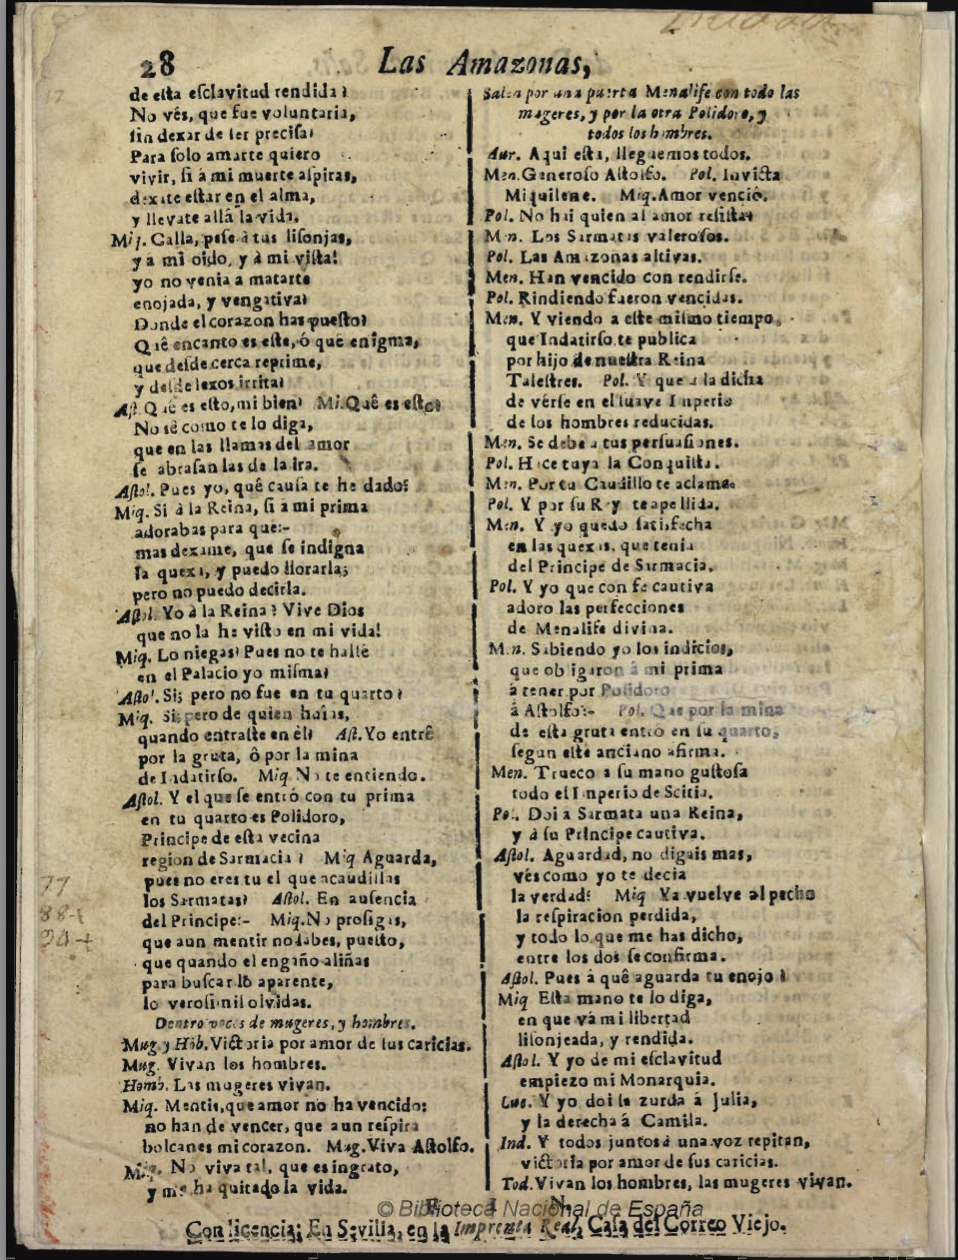 28 Las Amazonas,
de esta esclavitud rendida?
No vés, que fue voluntaria,
sin dexar de ser precisa?
Para solo amarte quiero
vivir, si á mi muerte aspiras,
dexate estar en el alma,
y llevate allá la vida.
Miq. Calla, pese à tus lisonjas,
y à mi oido, y à mi vista!
yo no venia a matarte
enojada, y vengativa?
Donde el corazon has puesto?
Quê encanto es este, ó què enigma,
que desde cerca reprime,
y desde lexos irrita?
Ast. Què es esto, mi bien? Mi. Quê es esto?
No sè como te lo diga,
que en las llamas del amor
se abrasan las de la ira.
Astol. Pues yo, quê causa te he dado?
Miq. Si à la Reina, si à mi prima
adorabas para que:-
mas dexame, que se indigna
la quexa, y puedo llorarla;
pero no puedo decirla.
Astol. Yo à la Reina? Vive Dios
que no la he visto en mi vida!
Miq. Lo niegas? Pues no te hallè
en el Palacio yo misma?
Astol. Si; pero no fue en tu quarto?
Miq. Si; pero de quien huías,
quando entraste en èl? Ast. Yo entrê
por la gruta, ô por la mina
de Indatirso. Miq. No te entiendo.
Astol. Y el que se entró con tu prima
en tu quarto es Polidoro,
Principe de esta vecina
region de Sarmacia? Miq Aguarda,
pues no eres tu el que acaudillas
los Sarmatas? Astol. En ausencia
del Principe:- Miq. No prosigas,
que aun mentir no sabes, puesto,
que quando el engaño aliñas
para buscar lô aparente,
lo verosimil olvidas.
Dentro voces de mugeres, y hombres.
Mug. y Hôb. Victoria por amor de sus caricias.
Mug. Vivan los hombres.
Homb. Las mugeres vivan.
Miq. Mentis, que amor no ha vencido:
no han de vencer, que aun respira
bolcanes mi corazon. Mug. Viva Astolfo.
Miq. No viva tal, que es ingrato,
y me ha quitado la vida.
Salen por una puerta Menalife con todo las
mugeres, y por la otra Polidoro, y
todos los hombres.
Aur. Aqui esta, lleguemos todos.
Men. Generoso Astolfo. Pol. Invicta
Miquilene. Miq. Amor venció.
Pol. No hai quien al amor resista?
Men. Los Sarmatas valerosos.
Pol. Las Amazonas altivas.
Men. Han vencido con rendirse.
Pol. Rindiendo fueron vencidas.
Men. Y viendo a este mismo tiempo,
que Indatirso te publica
por hijo de nuestra Reina
Talestres. Pol. Y que a la dicha
de vérse en el suave Imperio
de los hombres reducidas.
Men. Se debe a tus persuasiones.
Pol. Hice tuya la Conquista.
Men. Por tu Caudillo te aclama.
Pol. Y por su Rey te apellida.
Men. Y yo quedo satisfecha
en las quexas, que tenia
del Principe de Sarmacia.
Pol. Y yo que con fe cautiva
adoro las perfecciones
de Menalife divina.
Men. Sabiendo yo los indicios,
que obligaron á mi prima
à tener por Polidoro
á Astolfo:- Pol. Que por la mina
de esta gruta entró en su quarto,
segun este anciano afirma.
Men. Trueco a su mano gustosa
todo el Imperio de Scitia.
Pol. Doi a Sarmata una Reina,
y à su Principe cautiva.
Astol. Aguardad, no digais mas,
vés como yo te decia
la verdad? Miq Ya vuelve al pecho
la respiracion perdida,
y todo lo que me has dicho,
entre los dos se confirma.
Astol. Pues á quê aguarda tu enojo?
Miq Esta mano te lo diga,
en que vá mi libertad
lisonjeada, y rendida.
Astol. Y yo de mi esclavitud
empiezo mi Monarquia.
Luc. Y yo doi la zurda á Julia,
y la derecha á Camila.
Ind. Y todos juntos à una voz repitan,
victoria por amor de sus caricias.
Tod. Vivan los hombres, las mugeres vivan.
F I N.
© Biblioteca Nacional de España
Con licencia: En Sevilla, en la Imprenta Real, Casa del Correo Viejo.